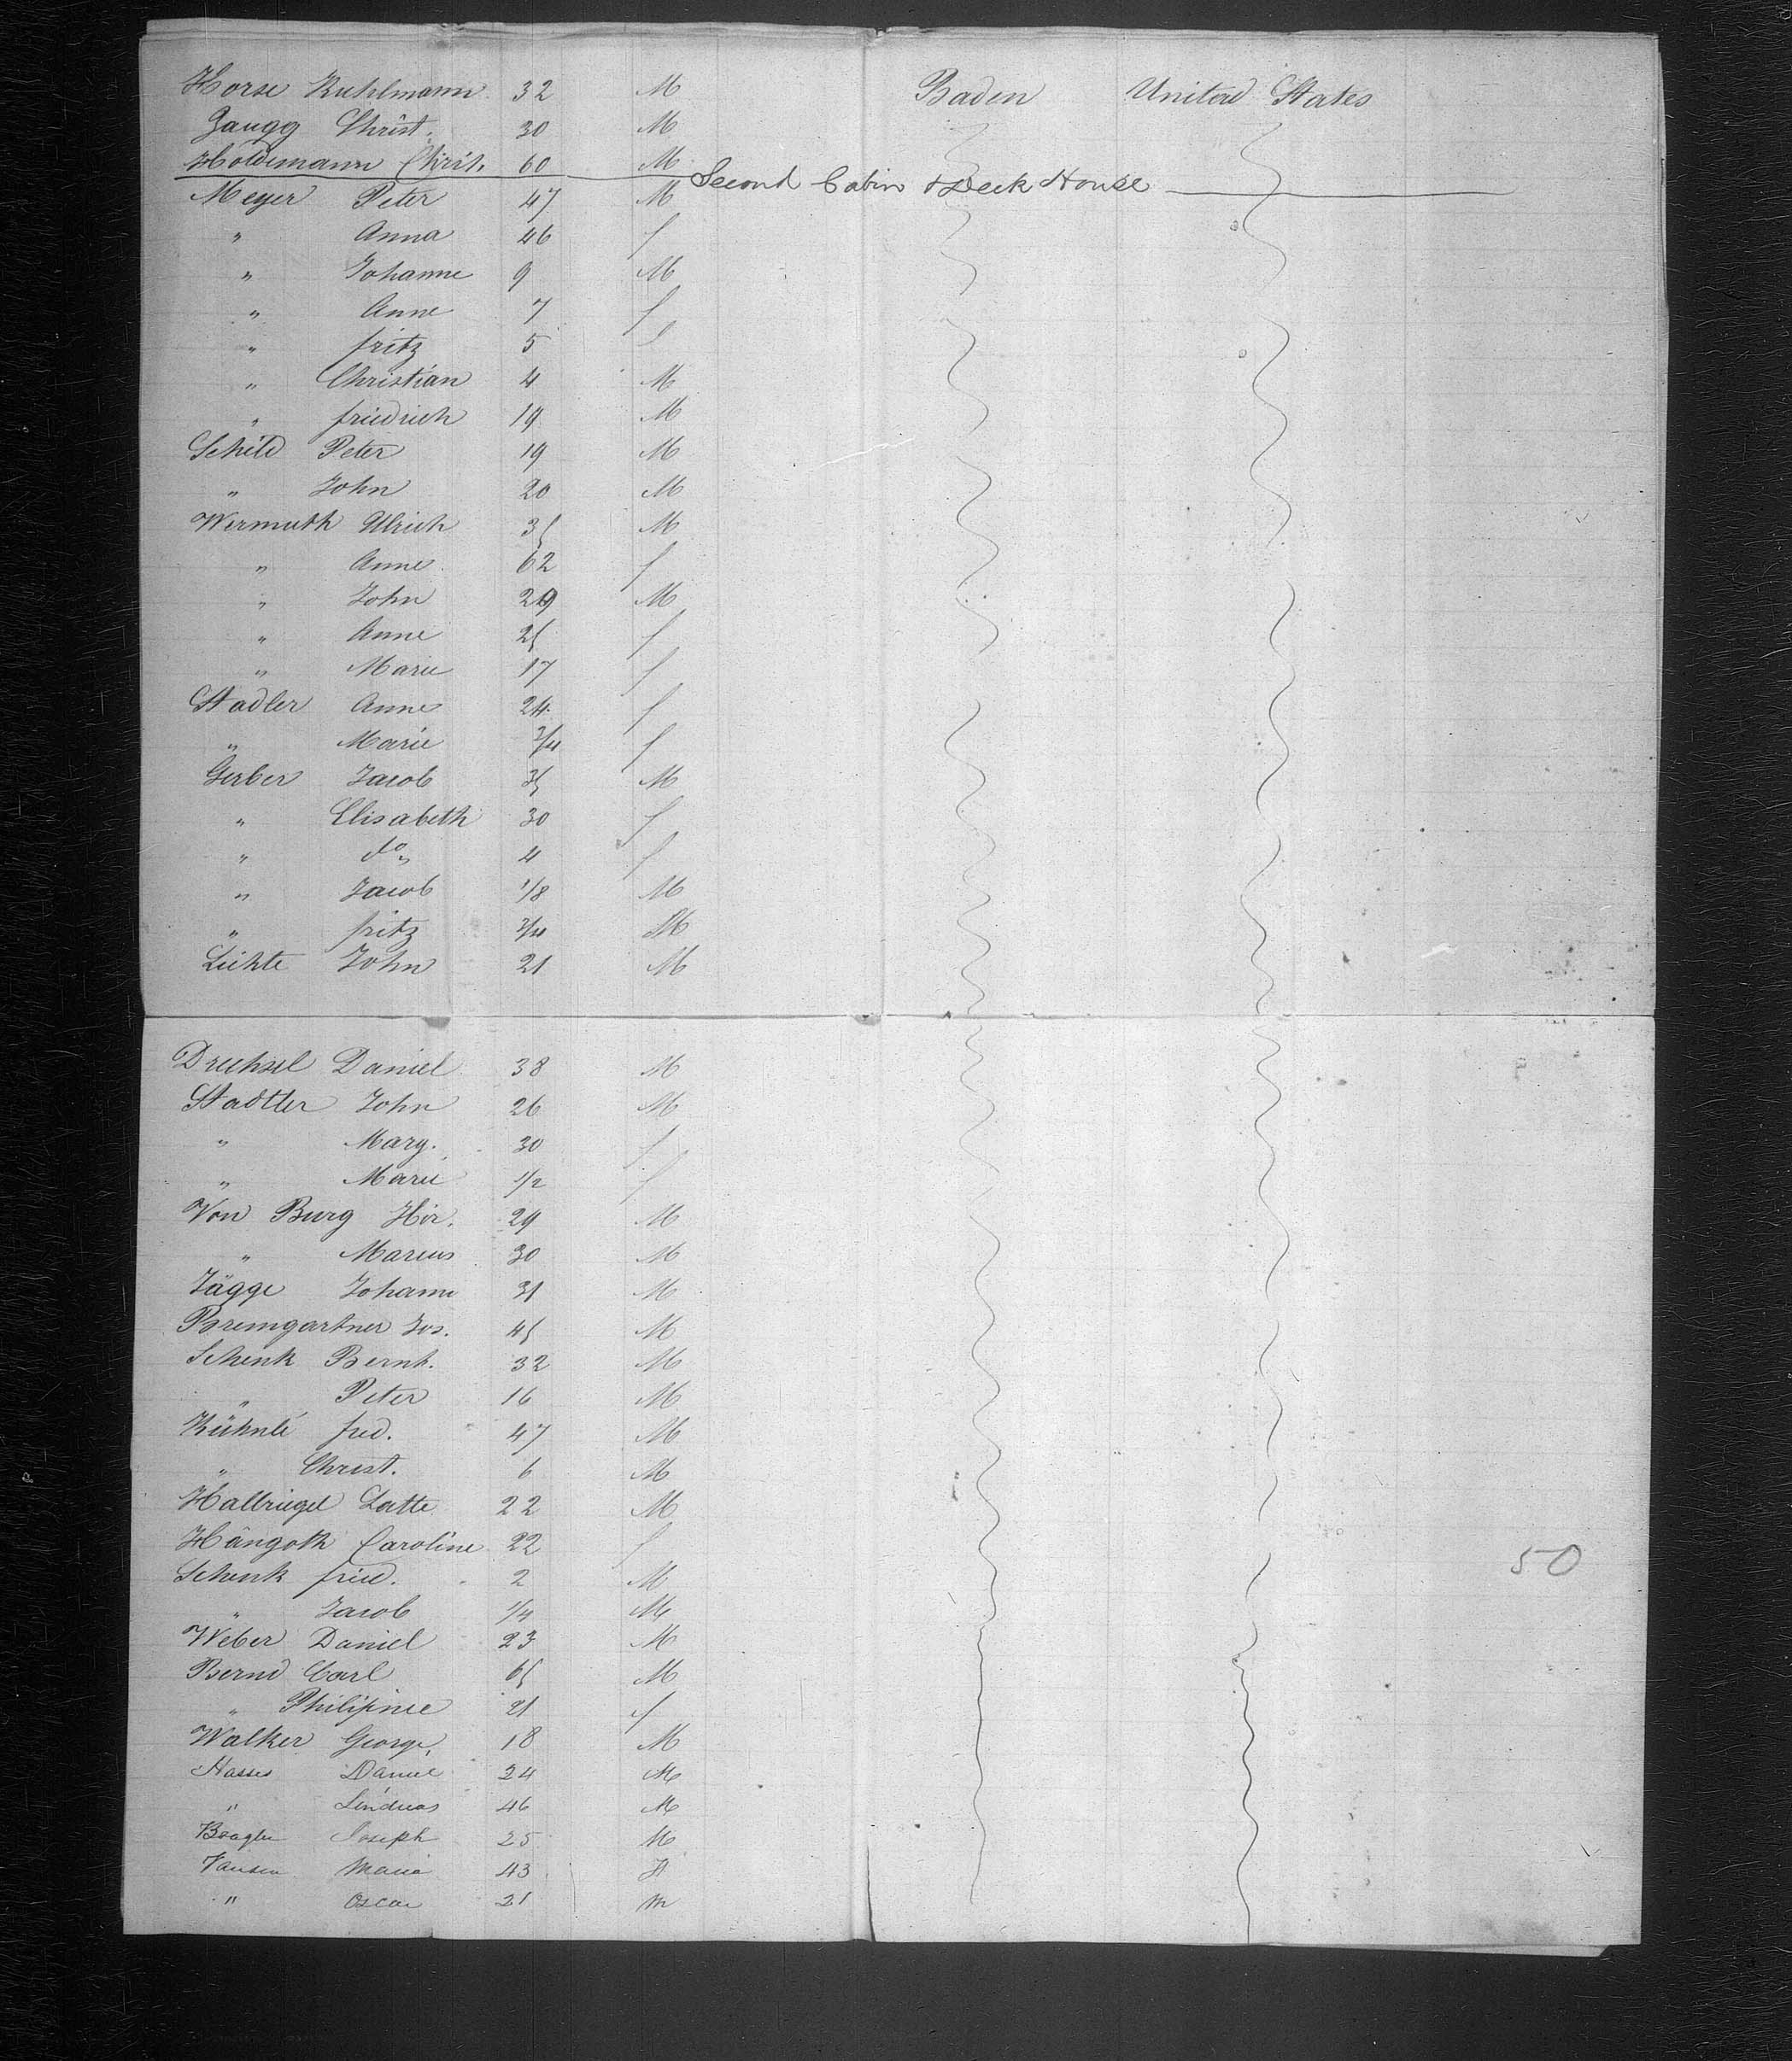 Horse Kuhlmann 32 M Baden United States
Zaugg Christ. 30 M
Holdimann Christ. 60 M
Second Cabin & Deck House
Meyer Peter 47 M
" Anna 46 f
" Johanne 9 M
" Anne 7 f
" fritz 5 f
" Christian 4 M
" friedrich 19 M
Schild Peter 19 M
" John 20 M
Wermuth Ulrich 35 M
" Anne 62 f
" John 29 M
" Anne 25 f
" Marie 17 f
Stadler Anne 24 f
" Marie 3/4 f
Gerber Jacob 35 M
" Elisabeth 30 f
" do " 4 f
" Jacob 1/8 M
" fritz 3/4 M
Liechte John 21 M
Drechsel Daniel 38 M
Stadtler John 26 M
" Mary. 30 f
" Marie 1/2 f
Von Burg Hir. 29 M
" Marcus 30 M
Jägge Johann 31 M
Bremgartner Jos. 45 M
Schenk Bernh. 32 M
" Peter 16 M
Kühnle fred. 47 M
" Christ. 6 M
Halbriegel Latte 22 M
Hängoth Caroline 22 f
50
Schenk fried. 2 M
" Jacob 1/4 M
Weber Daniel 23 M
Bernd Carl 65 M
" Philipine 21 f
Walker George 18 M
Daniel 24 M
" 46 M
Joseph 25 M
Jansen Maria 43 F
" Oscar 21 M